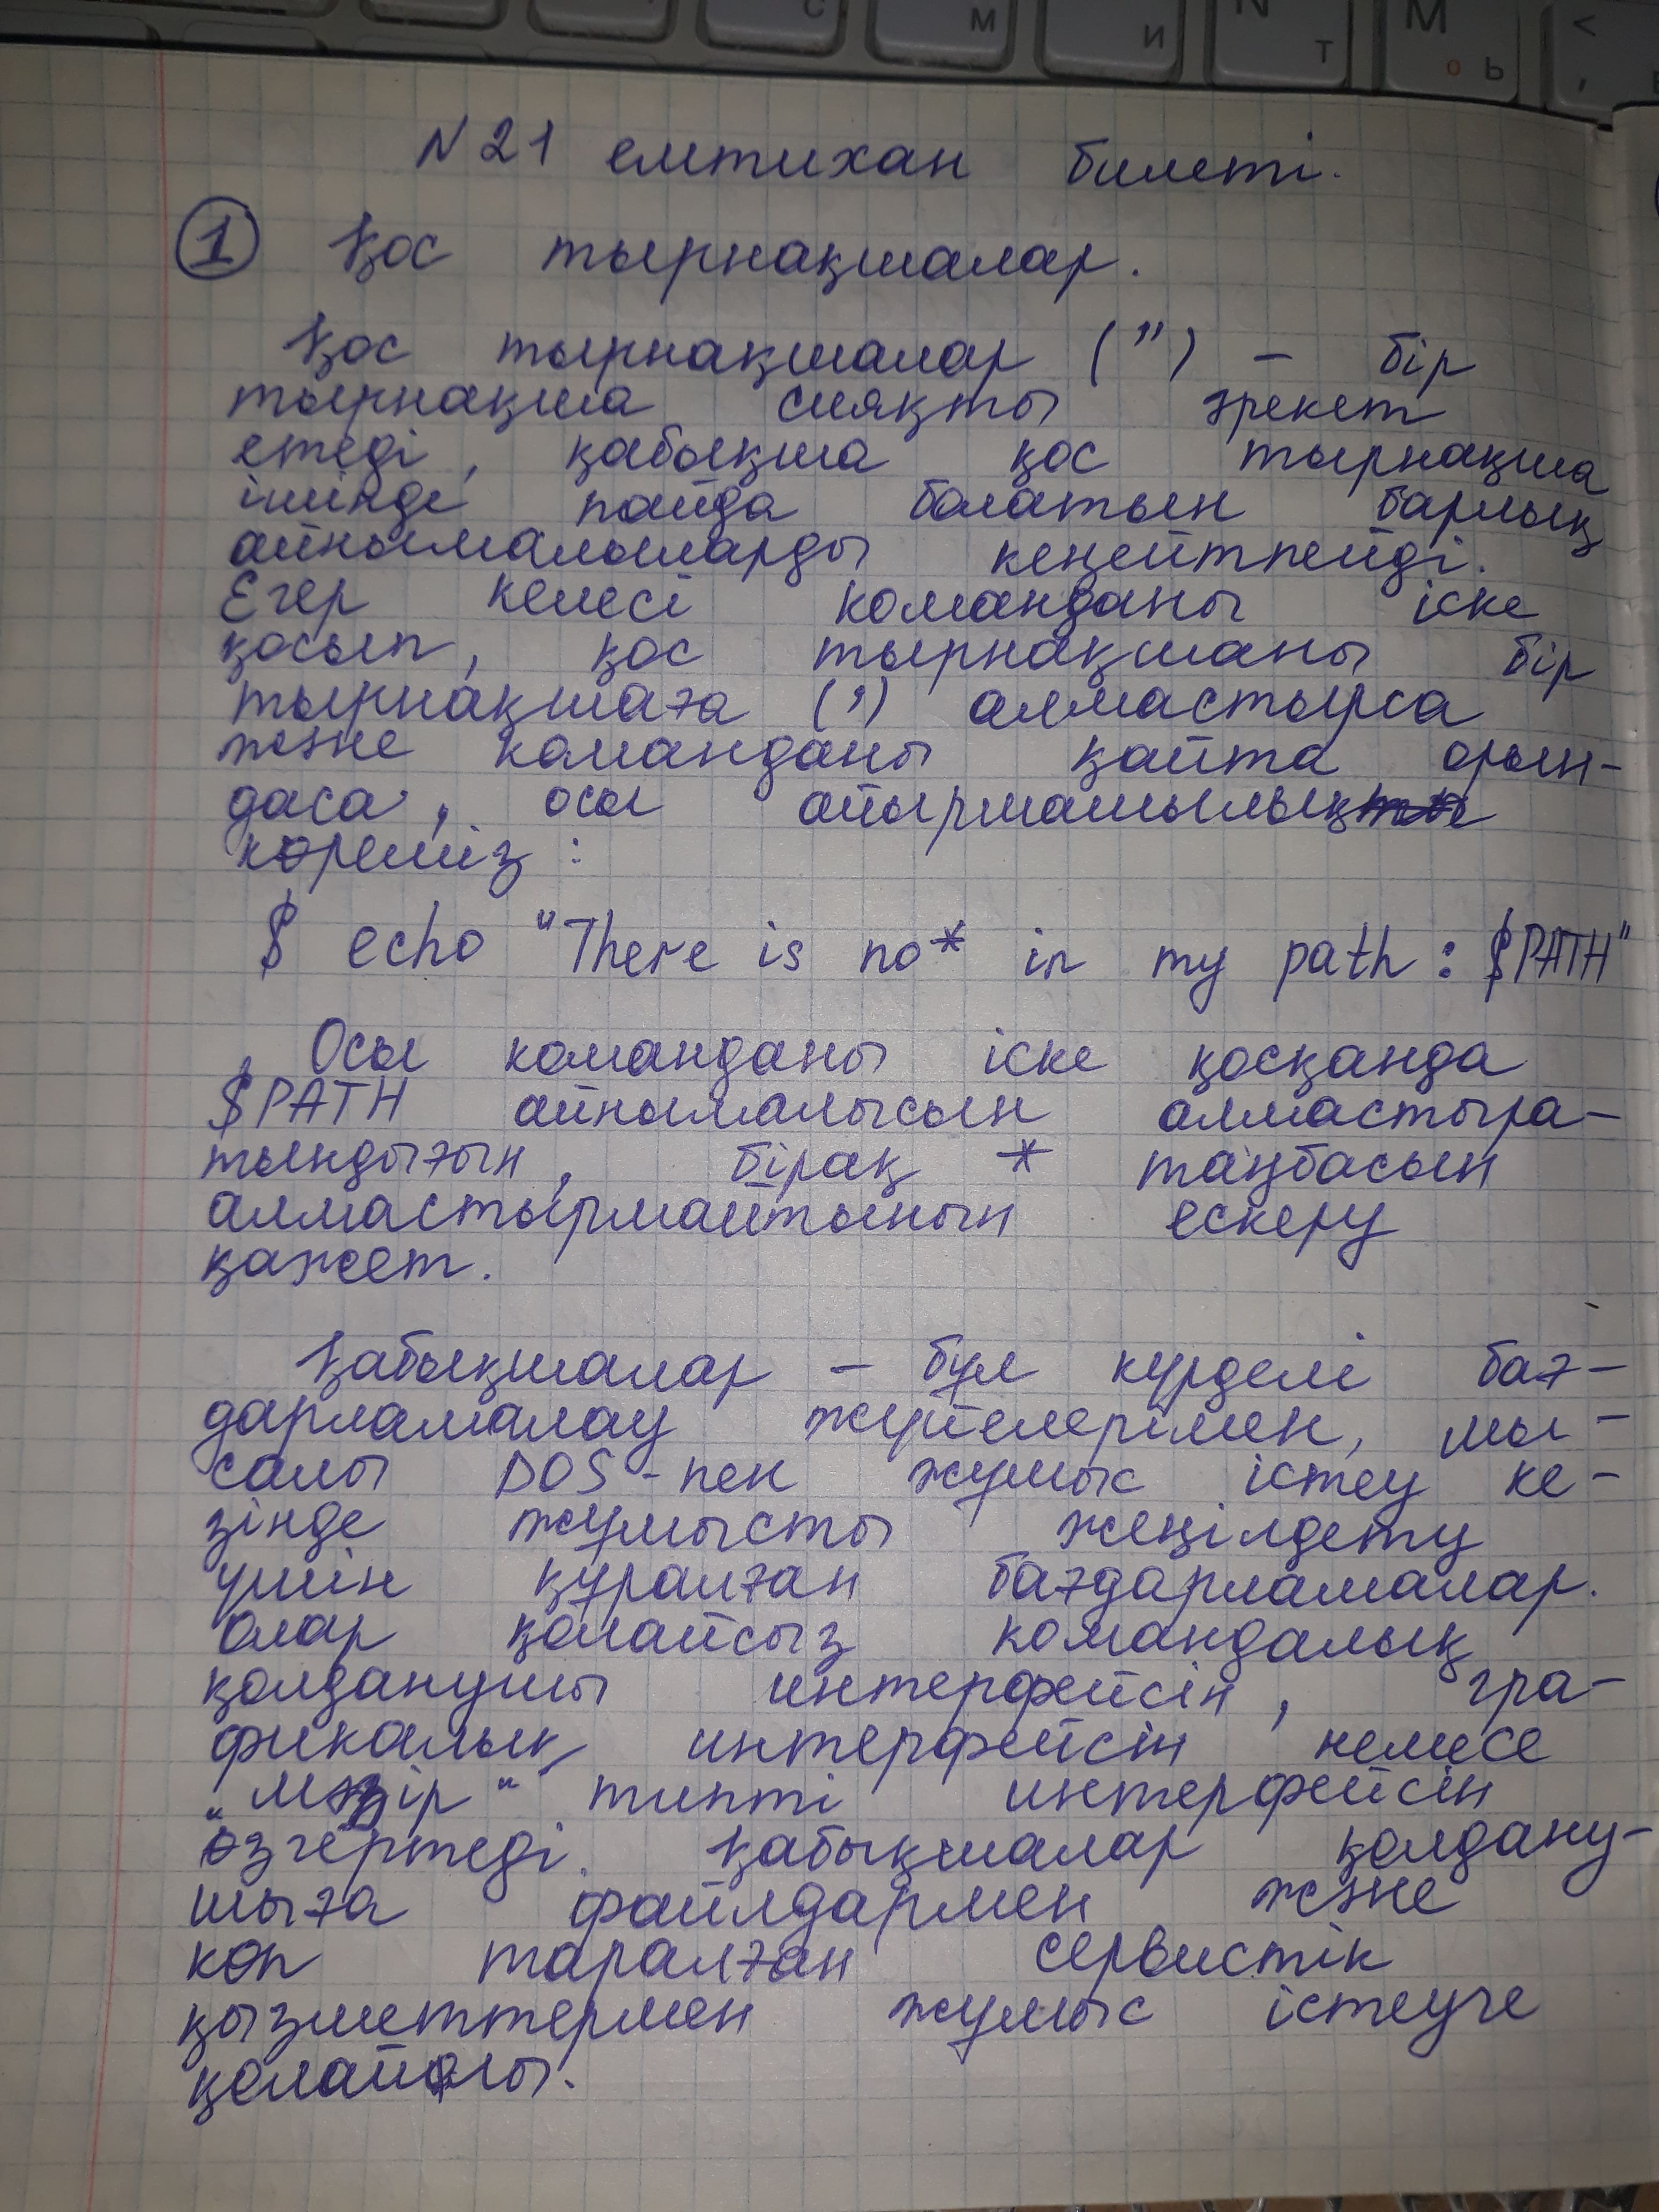 С
М
И
N
Т
М
Ь
<
,
N 21 емтихан билеті.
1 Қос тырнақшалар.
Қос тырнақшалар (") – бір
тырнақша сияқты әрекет
етеді, қабықша қос тырнақша
ішінде пайда болатын барлық
айнымалыларды кеңейтпейді.
Егер келесі команданы іске
қосып, қос тырнақшаны бір
тырнақшаға (') алмастырса
және команданы қайта орын-
даса, осы айырмашылық
көреміз:
$ echo "There is no * in my path : $PATH"
Осы команданы іске қосқанда
$PATH айнымалысын алмастыра-
тындығын, бірақ * таңбасын
алмастырмайтынын ескеру
қажет.
Қабықшалар – бұл күрделі бағ-
дарламалау жүйелерімен, мы-
салы DOS-пен жұмыс істеу ке-
зінде жұмысты жеңілдету
үшін құралған бағдарламалар.
Олар қолайсыз командалық
қолданушы интерфейсін, гра-
фикалық интерфейсін немесе
„мәзір“ типті интерфейсін
өзгертеді. Қабықшалар қолдану-
шыға файлдармен және
көп таралған сервистік
қызметтермен жұмыс істеуге
қолайлы.